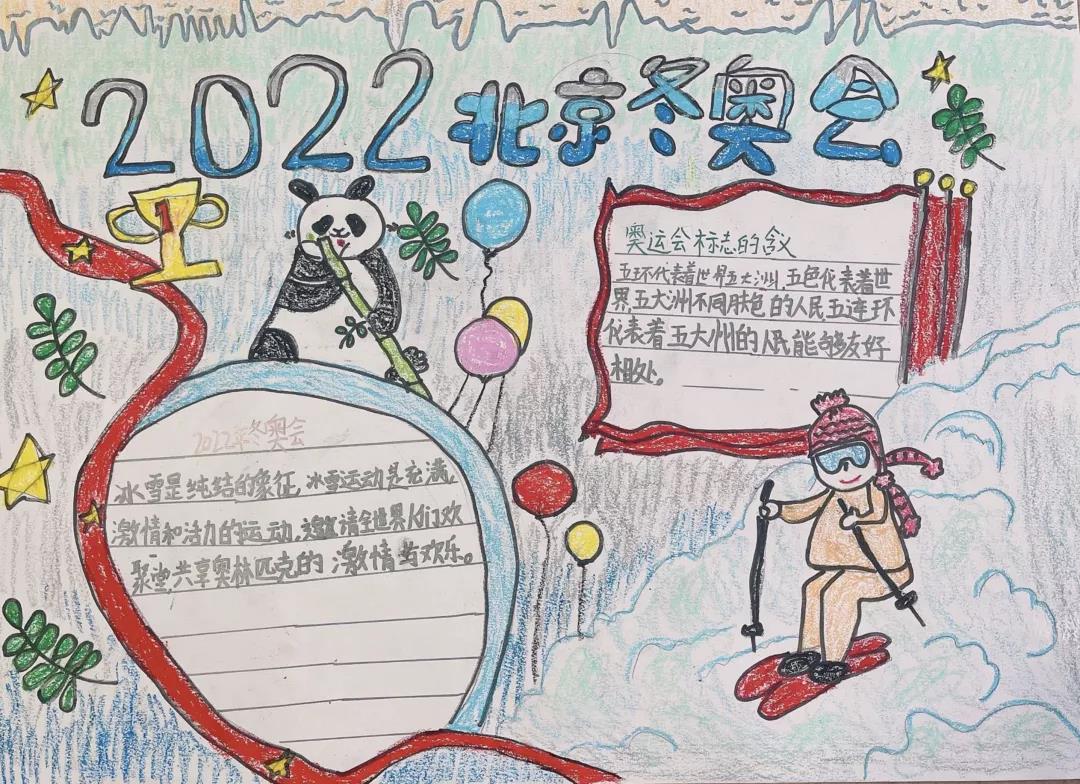 2022北京冬奥会
1
奥运会标志的含义
五环代表着世界五大洲,五色代表着世
界,五大洲不同肤色的人民五连环
代表着五大州的人民能够友好
相处。
2022年冬奥会
冰雪是纯结的象征,冰雪运动是充满,
激情和活力的运动,邀请全世界人们欢
聚堂,共享奥林匹克的激情与欢乐。